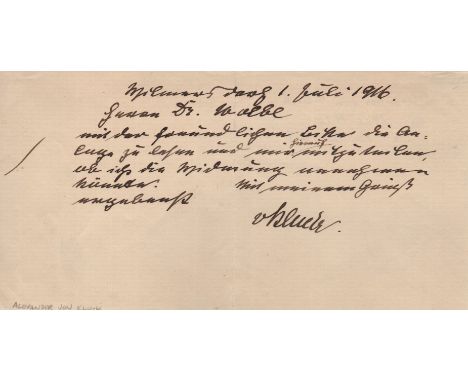 Wilmersdorf 1. Juli 1916.
Herrn Dr. Wolbe
mit der freundlichen Bitte die An-
lage zu lesen und mir hierauf mitzuteilen,
ob ich die Widmung annehmen
könnte. Mit meinem Gruß
ergebenst
vKluck.
ALEXANDER VON KLUCK